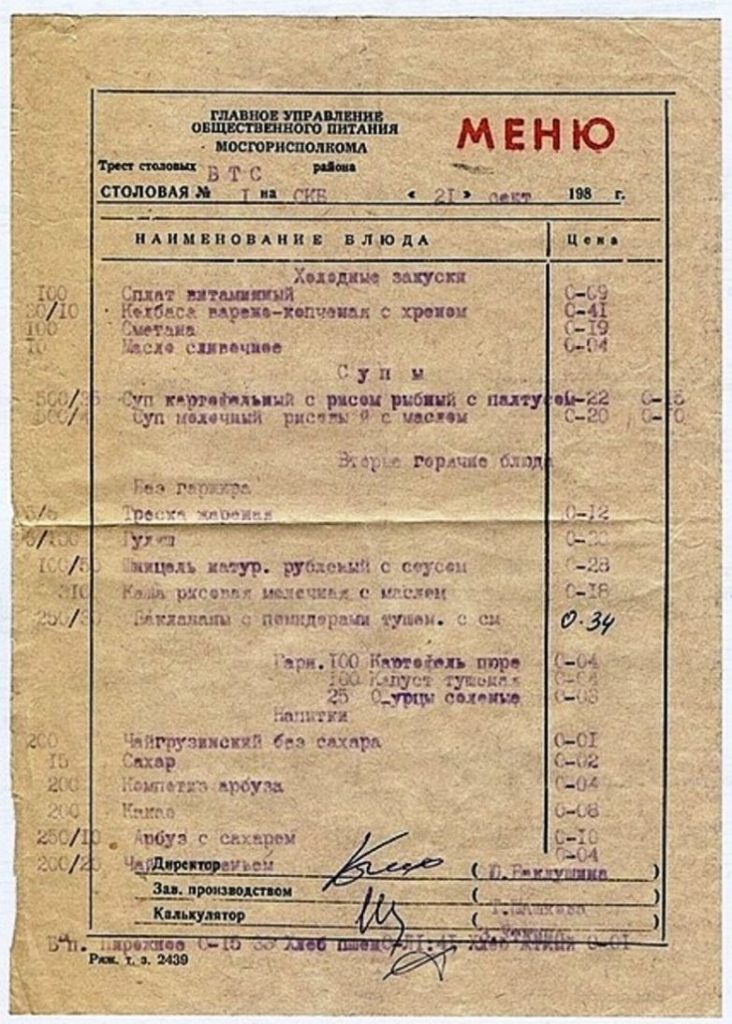 ГЛАВНОЕ УПРАВЛЕНИЕ
ОБЩЕСТВЕННОГО ПИТАНИЯ
МОСГОРИСПОЛКОМА
МЕНЮ
Трест столовых ВТС района
СТОЛОВАЯ № I на СКБ « 2I » сент 198 г.
НАИМЕНОВАНИЕ БЛЮДА Цена
Холодные закуски
I00 Сплат витаминный 0-09
30/I0 Колбаса варено-копченая с хреном 0-4I
I00 Сметана 0-I9
I0 Масло сливочное 0-04
Супы
500/35 Суп картофельный с рисом рыбный с палтусом 0-22
500/ Суп молочный рисовый с маслом 0-20 0-I0
Вторые горячие блюда
Без гарнира
Треска жареная 0-I2
Гуляш
I00/50 Шницель натур. рубленый с соусом 0-28
3I0 Каша рисовая молочная с маслом 0-I8
250/ Баклажаны с помидорами тушен. с см 0-34
Гарн. I00 Картофель пюре 0-04
I00 Капуст тушеная 0-04
25 О_урцы соленые 0-03
Напитки
200 Чайгрузинский без сахара 0-0I
I5 Сахар 0-02
200 Компотиз арбуза 0-04
200 Какао 0-08
250/I0 Арбуз с сахаром 0-I0
200/20 Чай 0-04
Директор ( Ю.Баклушина )
Зав. производством ( )
Калькулятор ( Т.Машкова )
Пирожное 0-I5 Хлеб 0-0I
Ряж. т. з. 2439